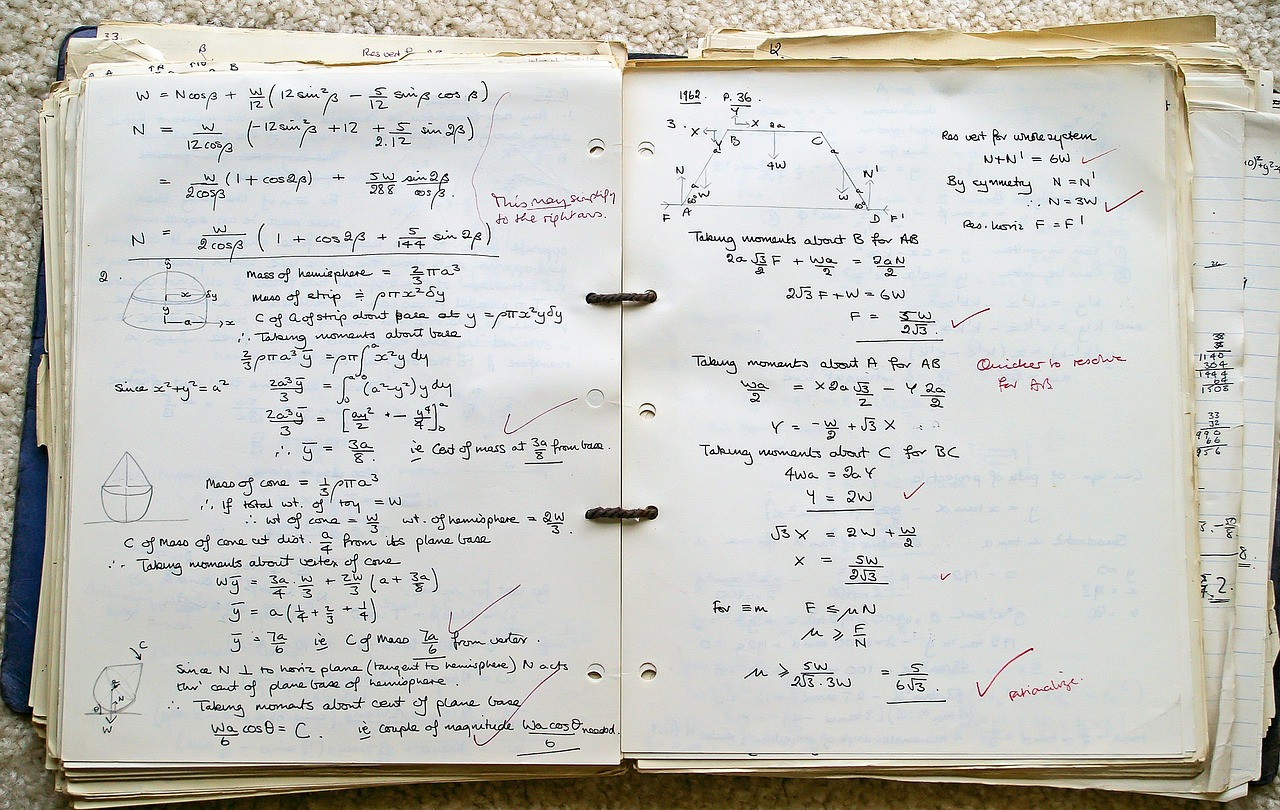 33.
β
Res vert
B
W = Ncosβ + W/12 (12sin²β − 5/12 sinβ cosβ)
N = W/12cosβ (−12sin²β + 12 + 5/2.12 sin2β)
= W/2cosβ (1 + cos2β) + 5W/288 sin2β/cosβ.
This may simplify
to the right ans.
N = W/2cosβ (1 + cos2β + 5/144 sin2β)
2.
y
x δy
y
a x
Mass of hemisphere = 2/3 πa³
Mass of strip ≑ ρπx²δy
C of G of strip about base at y = ρπx²yδy
∴ Taking moments about base
2/3 ρπa³ȳ = ρπ∫₀ᵃ x²y dy
Since x²+y² = a² 2a³ȳ/3 = ∫₀ᵃ (a²−y²)y dy
2a³ȳ/3 = [ay²/2 − y⁴/4]₀ᵃ
∴ ȳ = 3a/8 ie Cent of mass at 3a/8 from base.
Mass of cone = 1/3 ρπa³
∴ If total wt. of toy = W
∴ wt of cone = W/3 wt. of hemisphere = 2W/3.
C of Mass of cone at dist. a/4 from its plane base
∴ Taking moments about vertex of cone
Wȳ = 3a/4 . W/3 + 2W/3 (a + 3a/8)
ȳ = a(1/4 + 2/3 + 1/4)
ȳ = 7a/6 ie C of Mass 7a/6 from vertex.
C
N
θ
W
Since N ⊥ to horiz plane (tangent to hemisphere) N acts
thro' cent of plane base of hemisphere.
∴ Taking moments about cent of plane base
Wa/6 cosθ = C. ie couple of magnitude Wa cosθ/6 needed.
12.
1962. P. 36.
3.
Y
X 2a
X B C
Y a a
4W
N a a N'
W W
60° 60°
F A D F'
Res vert for whole system
N+N' = 6W
By symmetry N = N'
∴ N = 3W
Res. horiz F = F'
Taking moments about B for AB
2a √3/2 F + Wa/2 = 2aN/2
2√3 F + W = 6W
F = 5W/2√3.
Taking moments about A for AB
Quicker to resolve
for AB
Wa/2 = X2a√3/2 − Y 2a/2
Y = −W/2 + √3 X
Taking moments about C for BC
4Wa = 2aY
Y = 2W
√3 X = 2W + W/2
X = 5W/2√3
For ≡m F ≤ μN
μ ≥ F/N
μ ≥ 5W/2√3.3W = 5/6√3.
rationalize.
38
38
1140
304
1444
64
1508
33
32
990
66
956